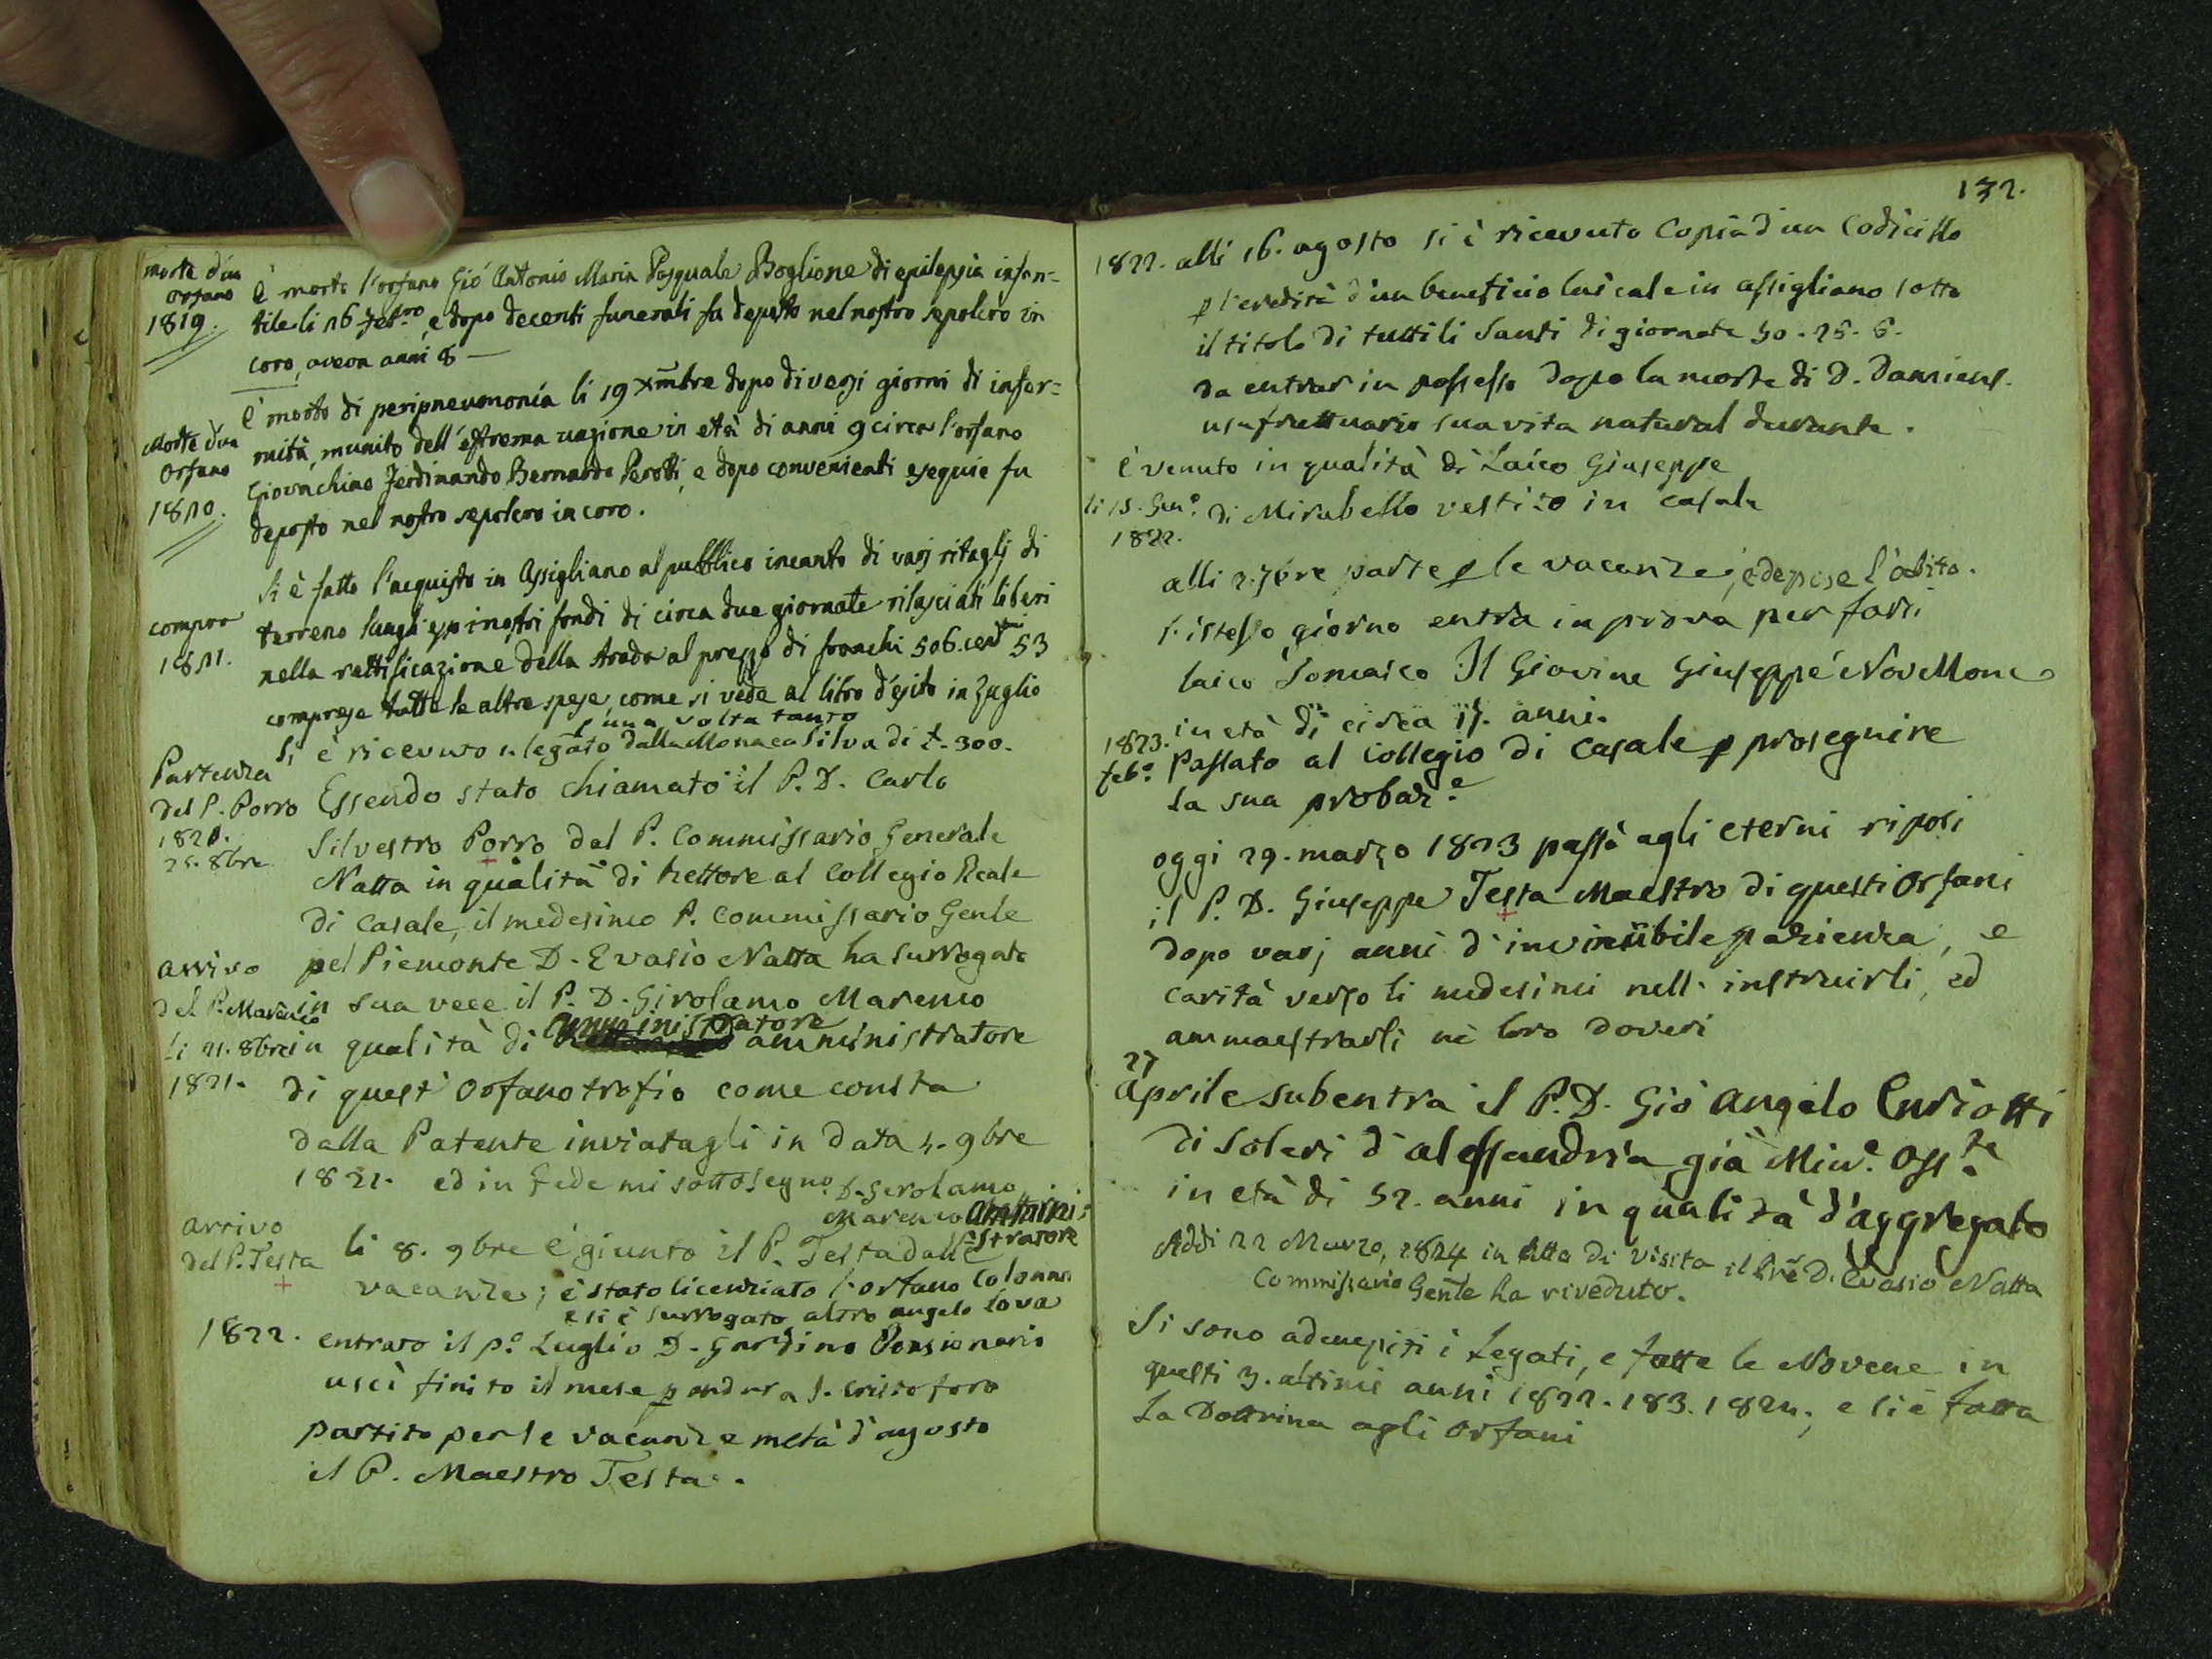 morte d'un
orfano
1819.
È morto l'orfano Gió Antonio Maria Pasquale Boglione di epilepsia infan=
tile li 26 7et.bre, e dopo decenti funerali fu deposto nel nostro sepolcro in
coro, aveva anni 8 —
Morte d'un
Orfano
1820.
È morto di peripneumonía li 19 Xmbre dopo diversi giorni di infer=
mità, munito dell'estrema unzione in età di anni 9 circa l'orfano
Giovachino Ferdinando Bernardo Perotti, e dopo convenienti esequie fu
deposto nel nostro sepolcro in coro.
compra
1821.
Si è fatto l'acquisto in Assigliano al pubblico incanto di varj ritaglj di
terreno lungh'essi i nostri fondi di circa due giornate rilasciati liberi
nella rettificazione della strada al prezzo di franchi 506. centmi 53
comprese tutte le altre spese, come si vede al libro d'esito in Luglio
p una volta tanto
Si è ricevuto il legato dalla Monaca Silva di £. 300.
Partenza
del P. Porro
1821.
25. 8bre
Essendo stato chiamato il P. D. Carlo
Silvestro Porro dal P. Commissario Generale
Natta in qualità di Rettore al Collegio Reale
di Casale, il medesimo P. Commissario Genle
pel Piemonte D. Evasio Natta ha surrogato
arrivo
del P. Marenco
li 21. 8bre
1821.
in sua vece il P. D. Girolamo Marenco
amministratore
in qualità di amministratore
di quest' Orfanotrofio come consta
dalla Patente inviatagli in data 4. 9bre
1821. ed in fede mi sottosegno. D. Gerolamo
Marenco Ammini=
stratore
arrivo
del P. Testa
li 8. 9bre è giunto il P. Testa dalle
vacanze; è stato licenziato l'orfano Colonna
e si è surrogato altro angelo Cova
1822. entrato il p.o Luglio D. Gardino Pensionario
uscì finito il mese p andar a S. Cristoforo
partito per le vacanze metà d'agosto
il P. Maestro Testa.
132.
1822. alli 16. agosto si è ricevuto Copia d'un Codicillo
p l'eredità d'un beneficio laicale in assigliano sotto
il titolo di tutti li Santi di giornate 30. 25. 6.
da entrar in possesso dopo la morte di D. Damiens.
usufruttuario sua vita natural durante.
è venuto in qualità di Laico Giuseppe
li 15. Gen.o
1822.
di Mirabello vestito in Casale
alli 2. 7bre parte p le vacanze, e depose l'abito.
l'istesso giorno entra in prova per farsi
laico Somasco Il Giovine Giuseppe Novellone
in età di circa 17. anni.
1823.
feb.o
Passato al Collegio di Casale p proseguire
la sua probaz.e
oggi 29. marzo 1823 passò agli eterni riposi
il P. D. Giuseppe Testa Maestro di questi Orfani
dopo varj anni d'invincibile pazienza, e
carità verso li medesimi nell'instruirli, ed
ammaestrarli ne loro doveri
27
aprile subentra il P. D. Gió Angelo Curiotti
di Soleri d'alessandria già Min.e Oss.te
in età di 52. anni in qualità d'aggregato
Addi 22 Marzo, 1824 in atto di visita il Prē D. Evasio Natta
Commissario Gen̄le ha riveduto.
Si sono adempiti i Legati, e fatte le Novene in
questi 3. ultimi anni 1822. 183. 1824; e si è fatta
La Dottrina agli Orfani